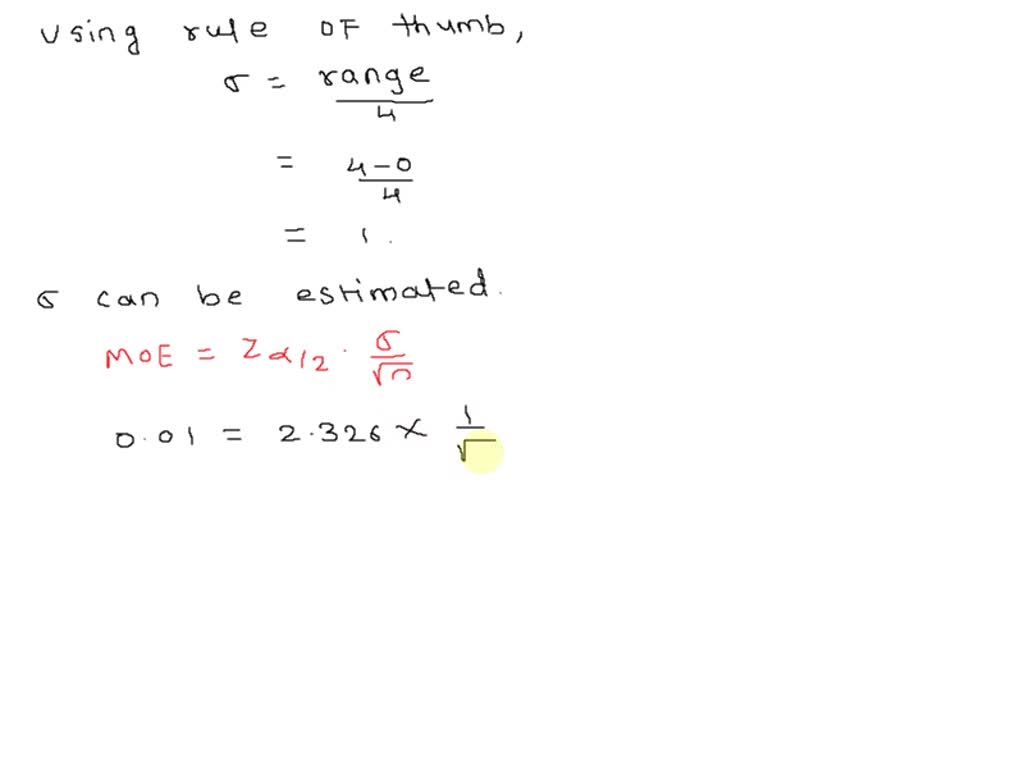 using rule OF thumb,
σ = range / 4
= 4 - 0 / 4
= 1.
σ can be estimated.
MOE = Zα/2 · σ / √n
0.01 = 2.326 × 1 / √